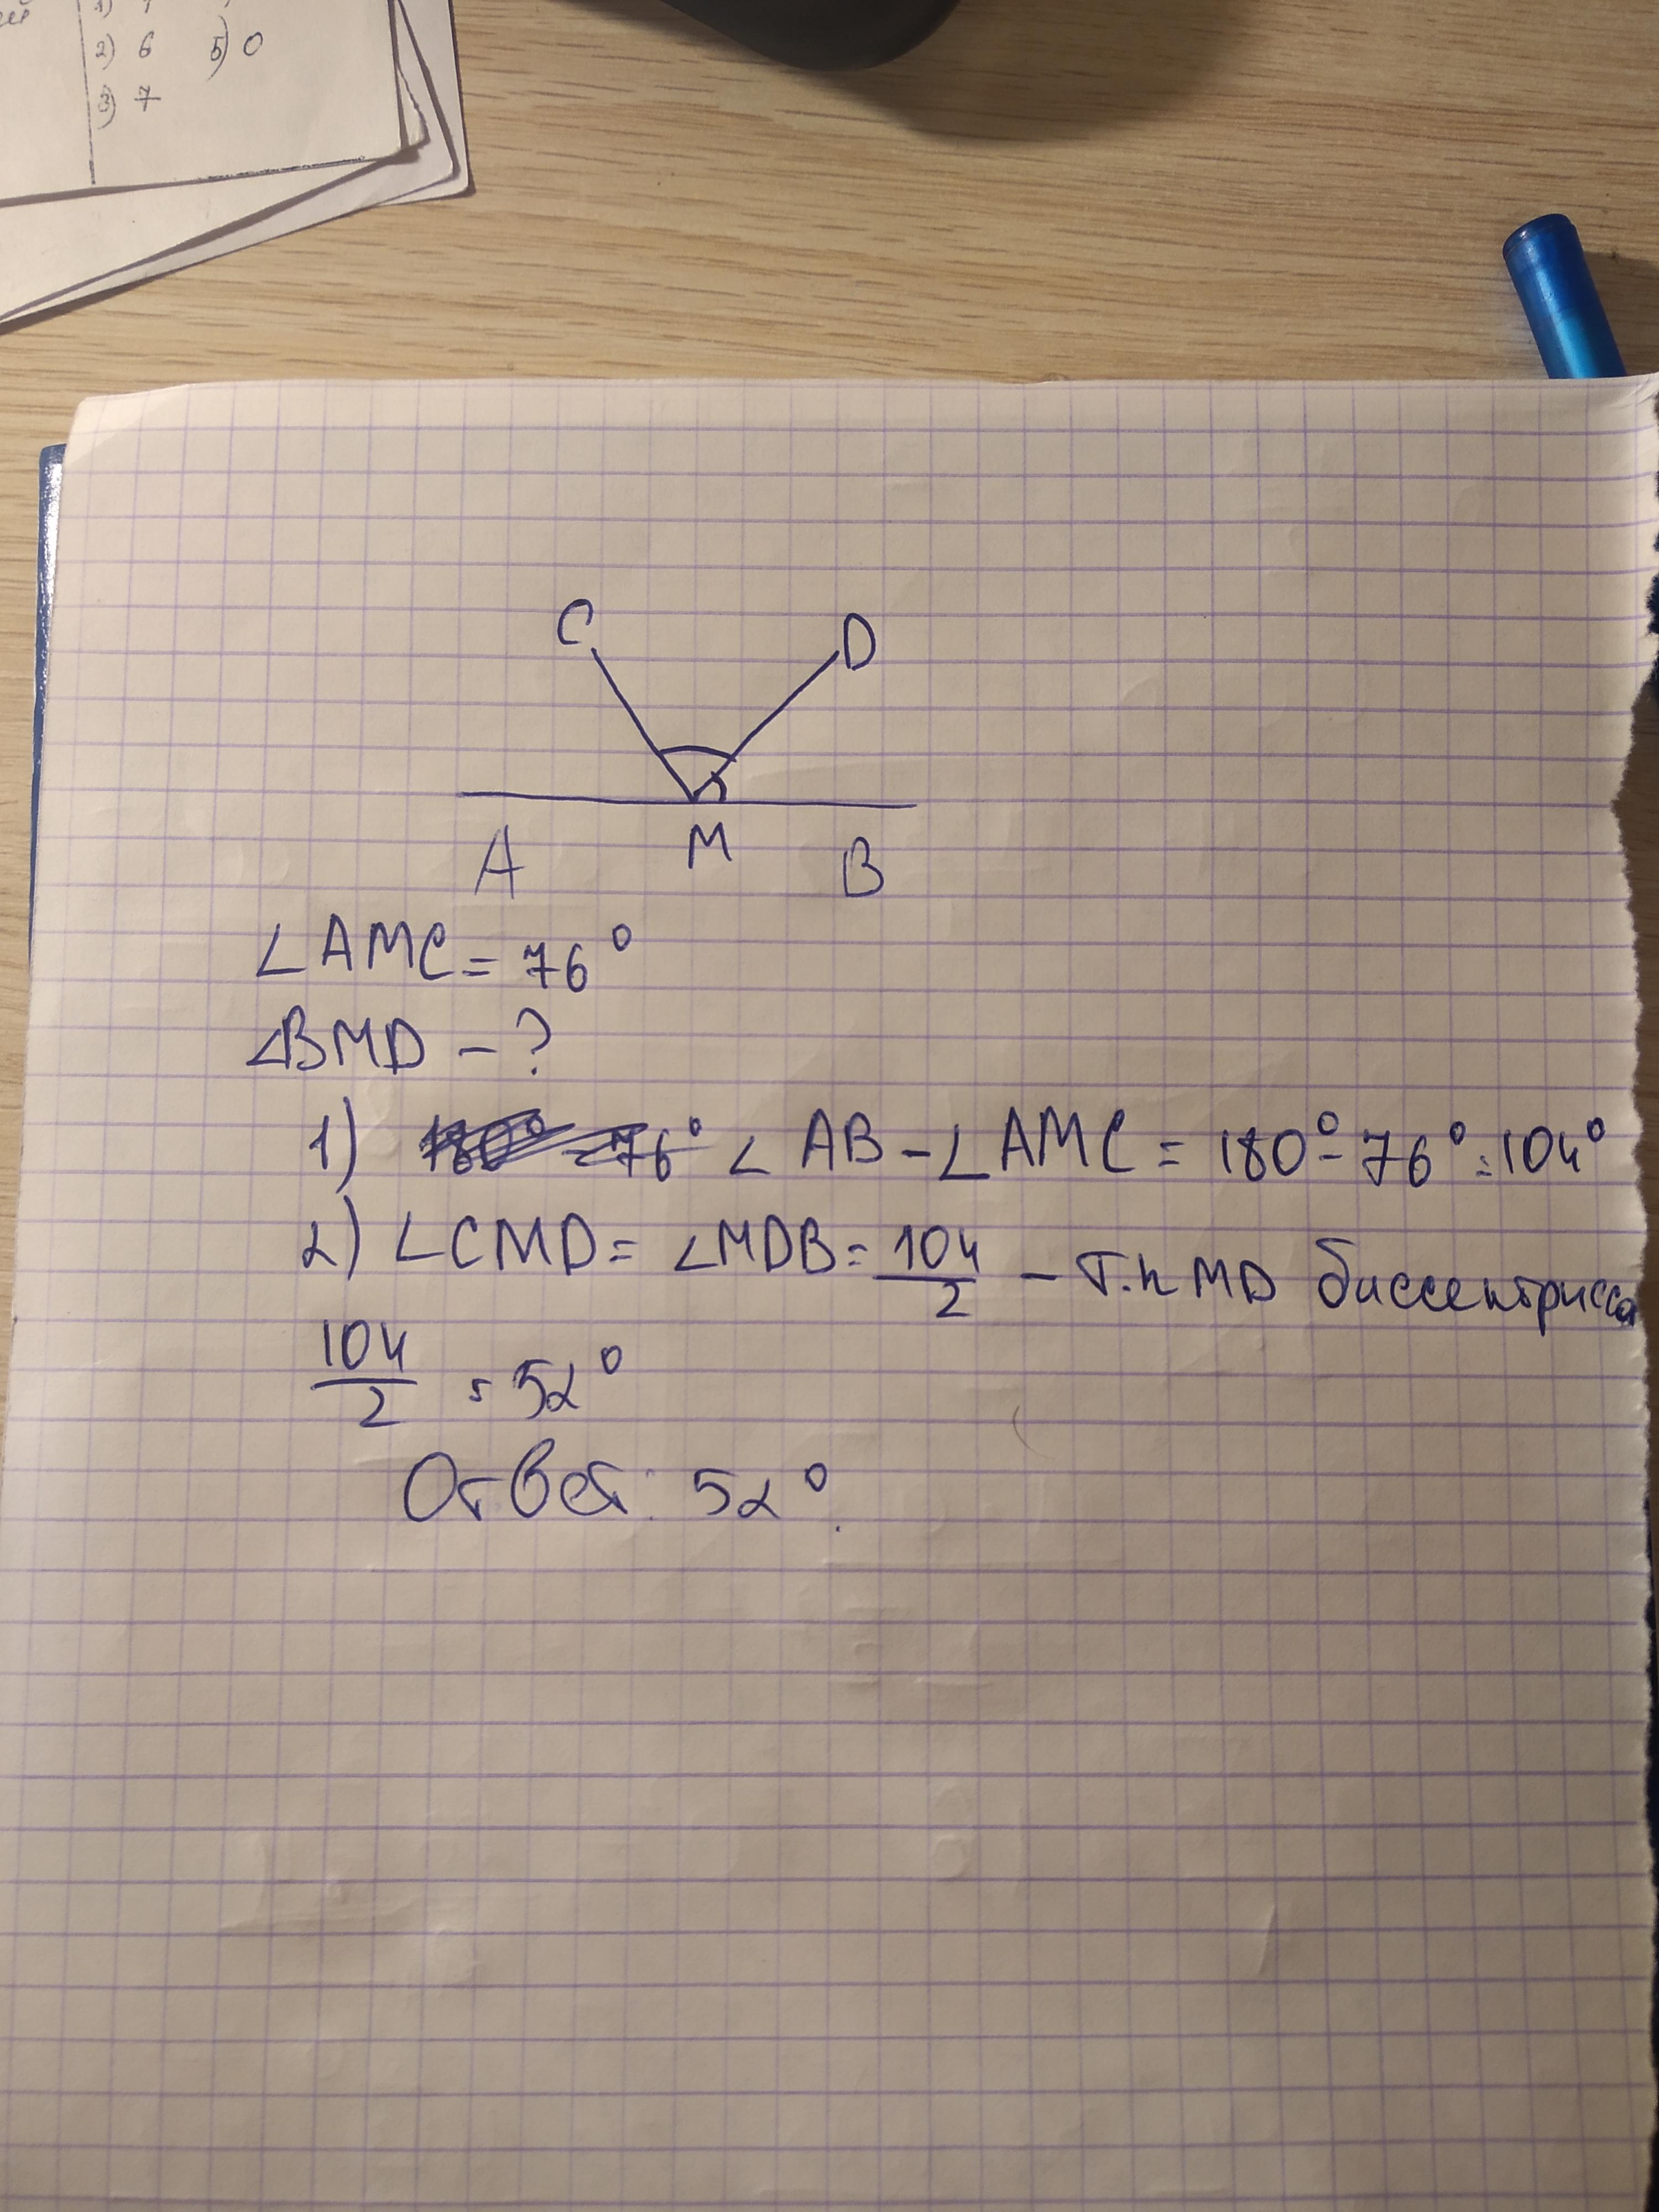 2) 6 5) 0
3) 7
C D
A M B
∠AMC = 76°
∠BMD - ?
1) ∠AB - ∠AMC = 180° - 76° = 104°
2) ∠CMD = ∠MDB = 104/2 - т.к MD биссектрисса
104/2 = 52°
Ответ: 52°.